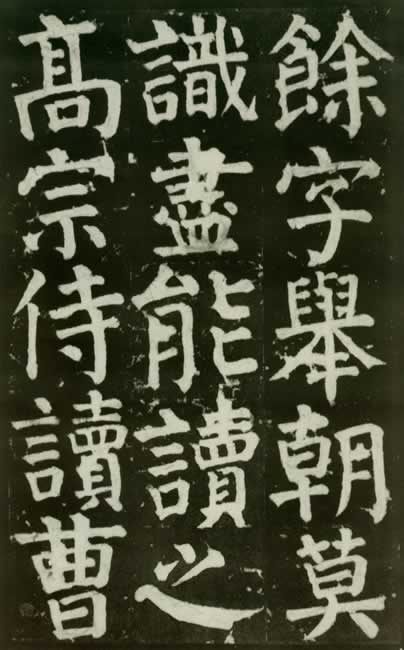 餘字舉朝莫
識盡能讀之
髙宗侍讀曹